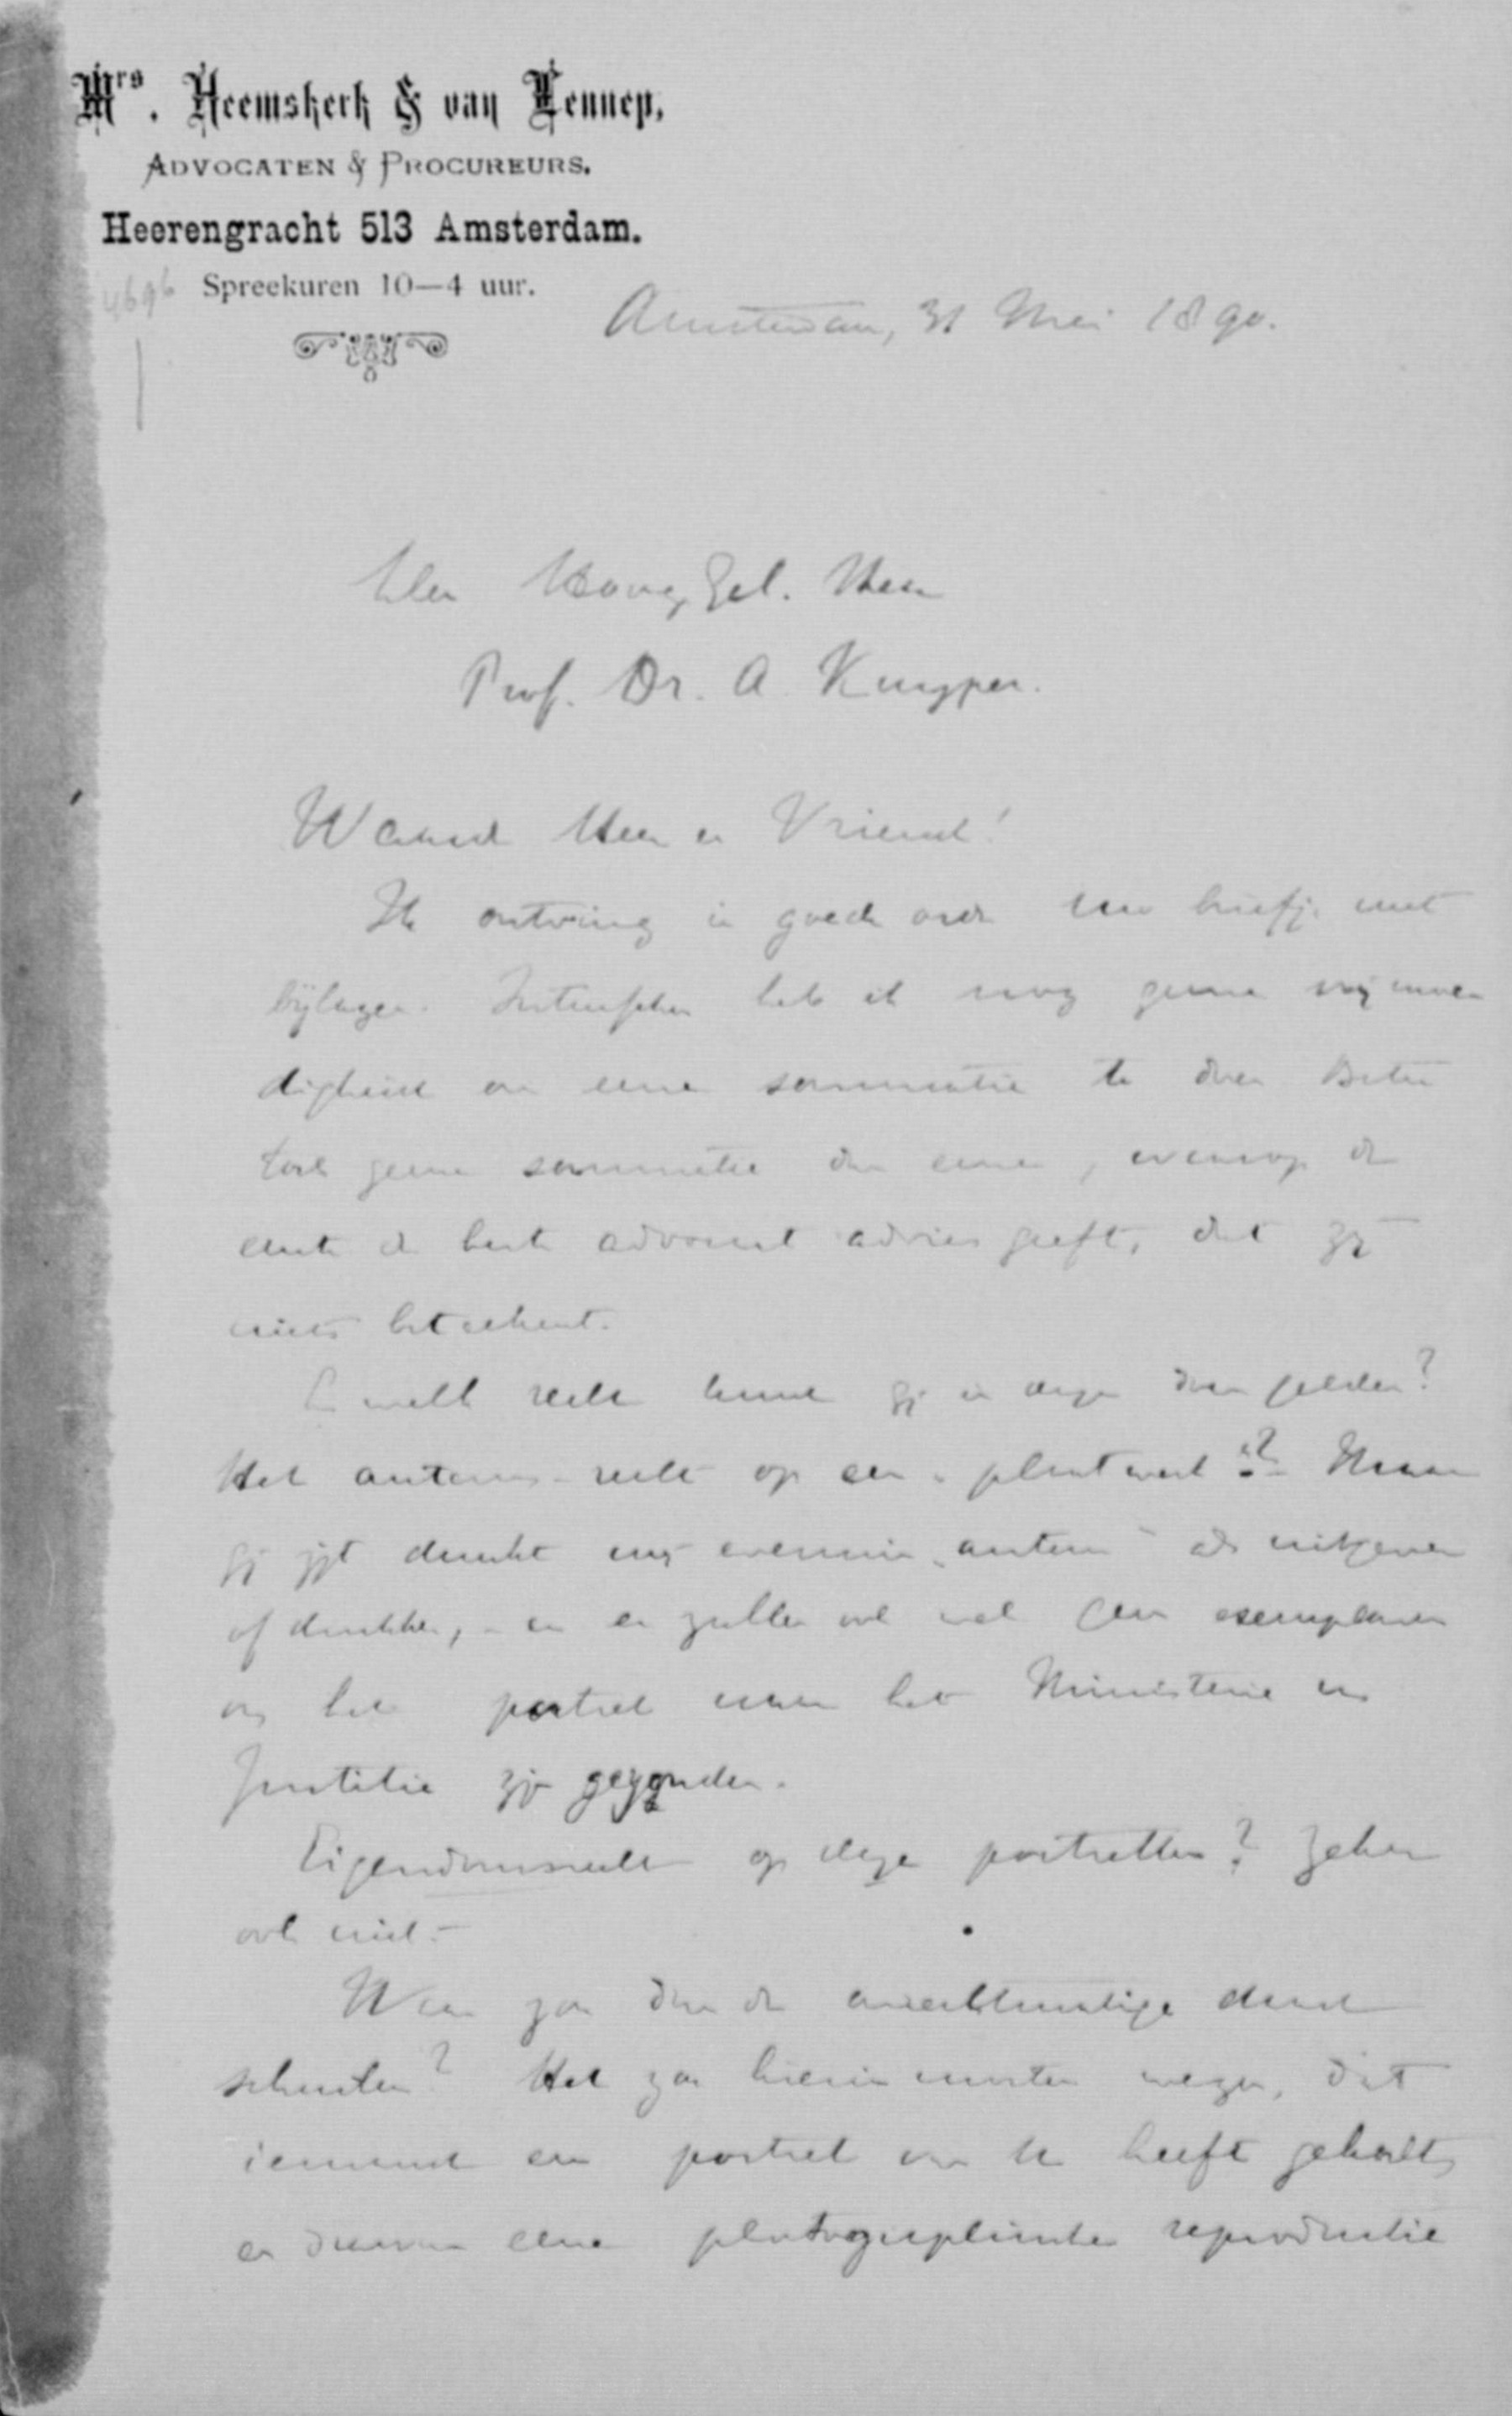 Mrs. Heemskerk & van Lennep,
ADVOCATEN & PROCUREURS.
Heerengracht 513 Amsterdam.
Spreekuren 10—4 uur.
4696
Amsterdam, 31 Mei 1890.
Den HoogGel. Heer
Prof. Dr. A. Kuyper.
Waarde Heer en Vriend!
Ik ontving in goede orde Uw briefje met
bijlagen. Intusschen heb ik nog geene vrijmoe
digheid om eene sommatie te doen. Beter
toch geene sommatie dan eene, waarop de
eerste de beste advocaat advies geeft, dat zij
niets beteekent.
Welk recht kunt gij in deze doen gelden?
Het auteursrecht op een "plaatwerk"? Maar
gij zijt dunkt mij evenmin "auteur" als uitgever
of drukker, en er zullen ook wel geen exemplaren
van het portret naar het Ministerie van
Justitie zijn gezonden.
Eigendomsrecht op deze portretten? Zeker
ook niet.
Waar zou dan de onrechtmatige daad
schuilen? Het zou hierin moeten liegen, dat
iemand een portret van U heeft gekocht,
en daarvan eene photographische reproductie